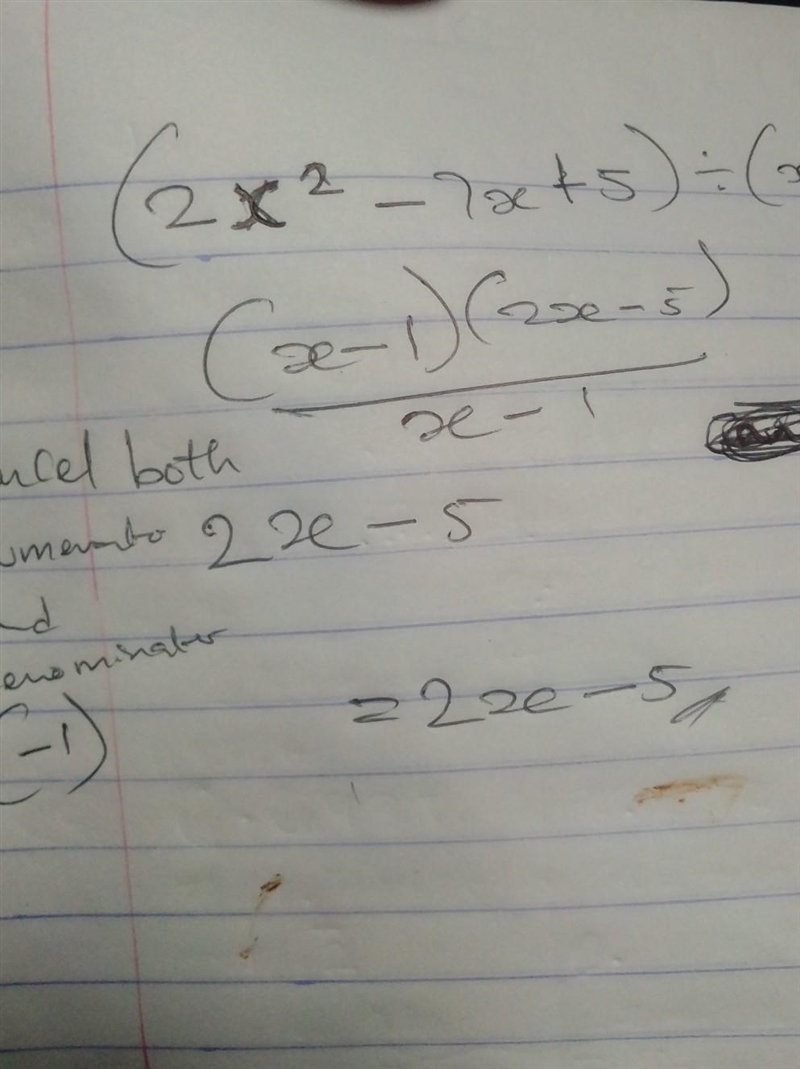 (2x² - 7x + 5) ÷ (x
(x - 1)(2x - 5)
x - 1
ncel both
umerato 2x - 5
nd
enominator
= 2x - 5
-1)